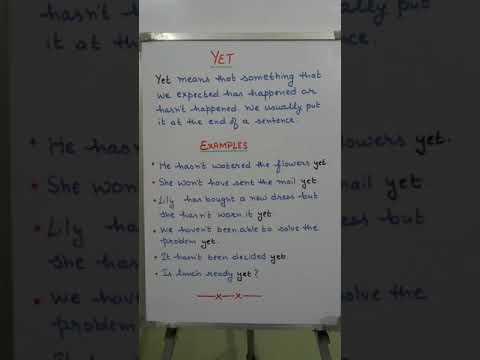 YET
Yet means that something that
we expected has happened or
hasn't happened. We usually put
it at the end of a sentence.
EXAMPLES
• He hasn't watered the flowers yet.
• She won't have sent the mail yet.
• Lily has bought a new dress but
she hasn't worn it yet.
• We haven't been able to solve the
problem yet.
• It hasn't been decided yet.
• Is lunch ready yet?